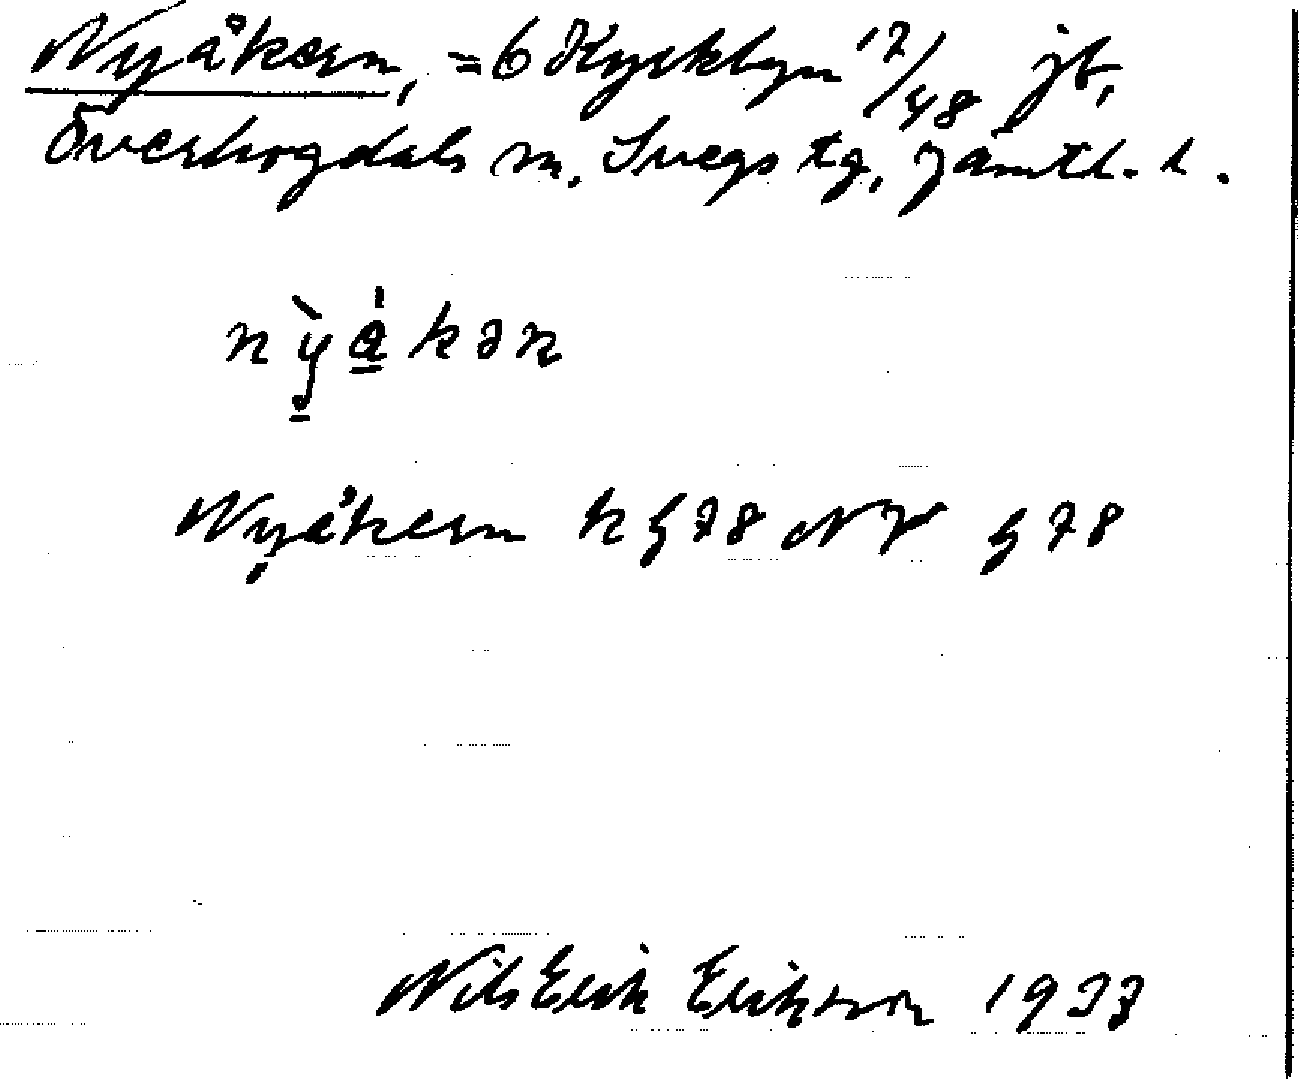 Nyåkern, = 6 Kyrkbyn 17/48 jb,
Överhogdals sn, Svegs tg, Jämtl. l.
nỳákən
Nyåkern kg 78 NV g 78
Nils Erik Erikson 1933